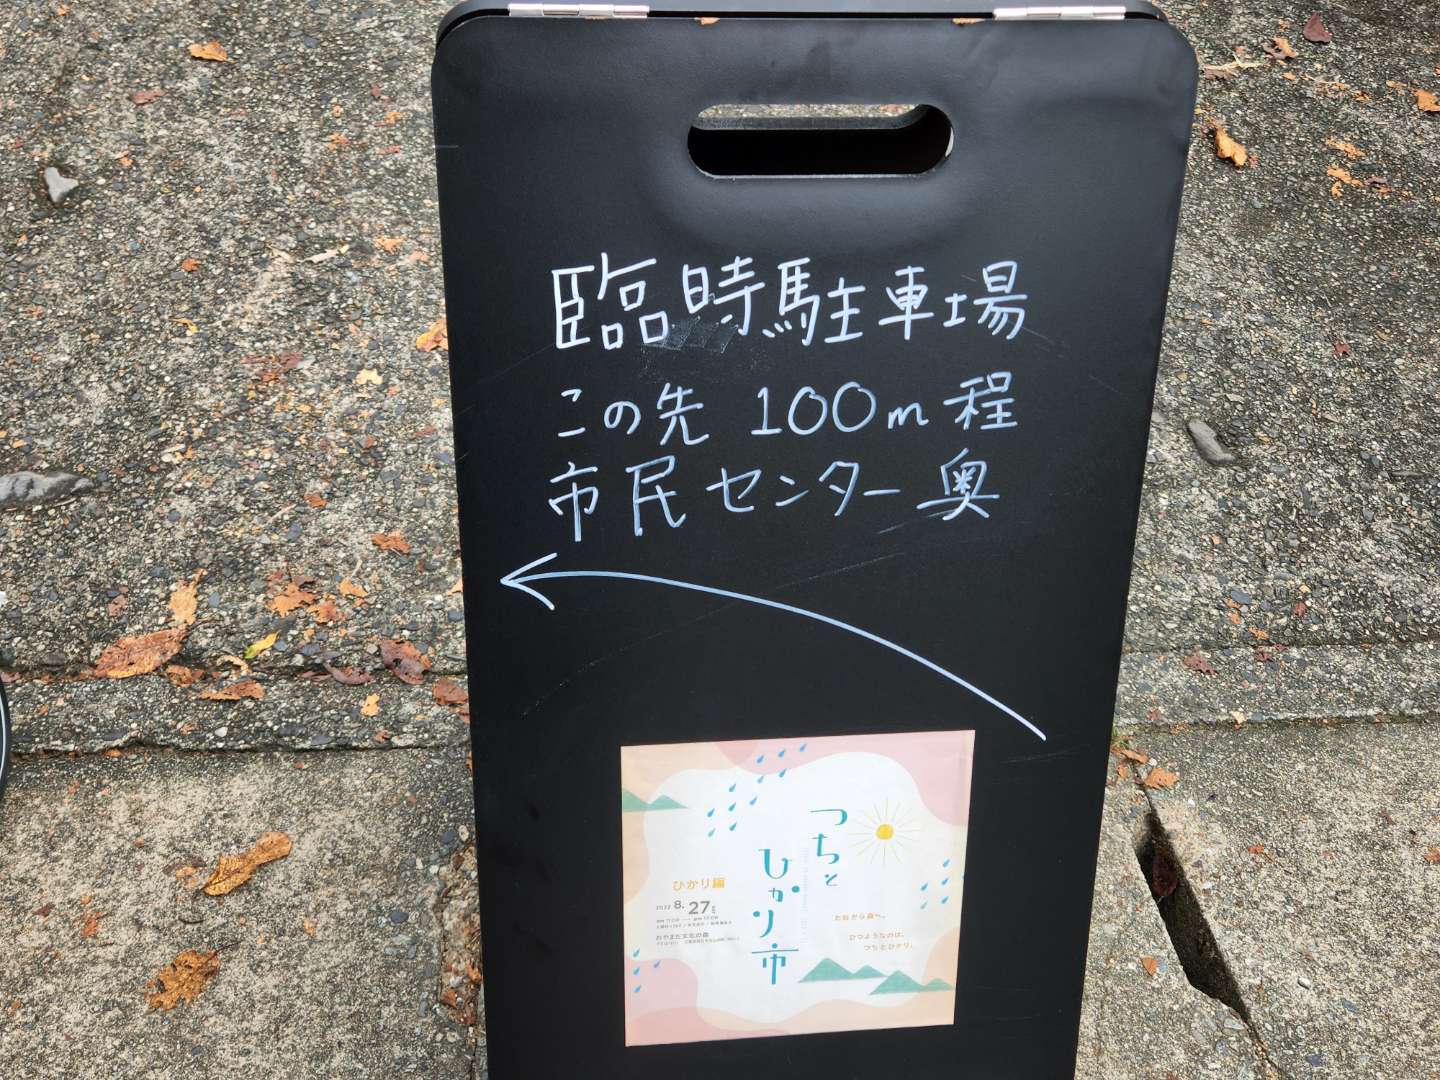 臨時駐車場
この先 100m程
市民センター奥
つちと
ひかり市
ひかり編
2022 8.27
おやまだ文化の森
お山から森へ。
ひつようなのは、
つちとひかり。